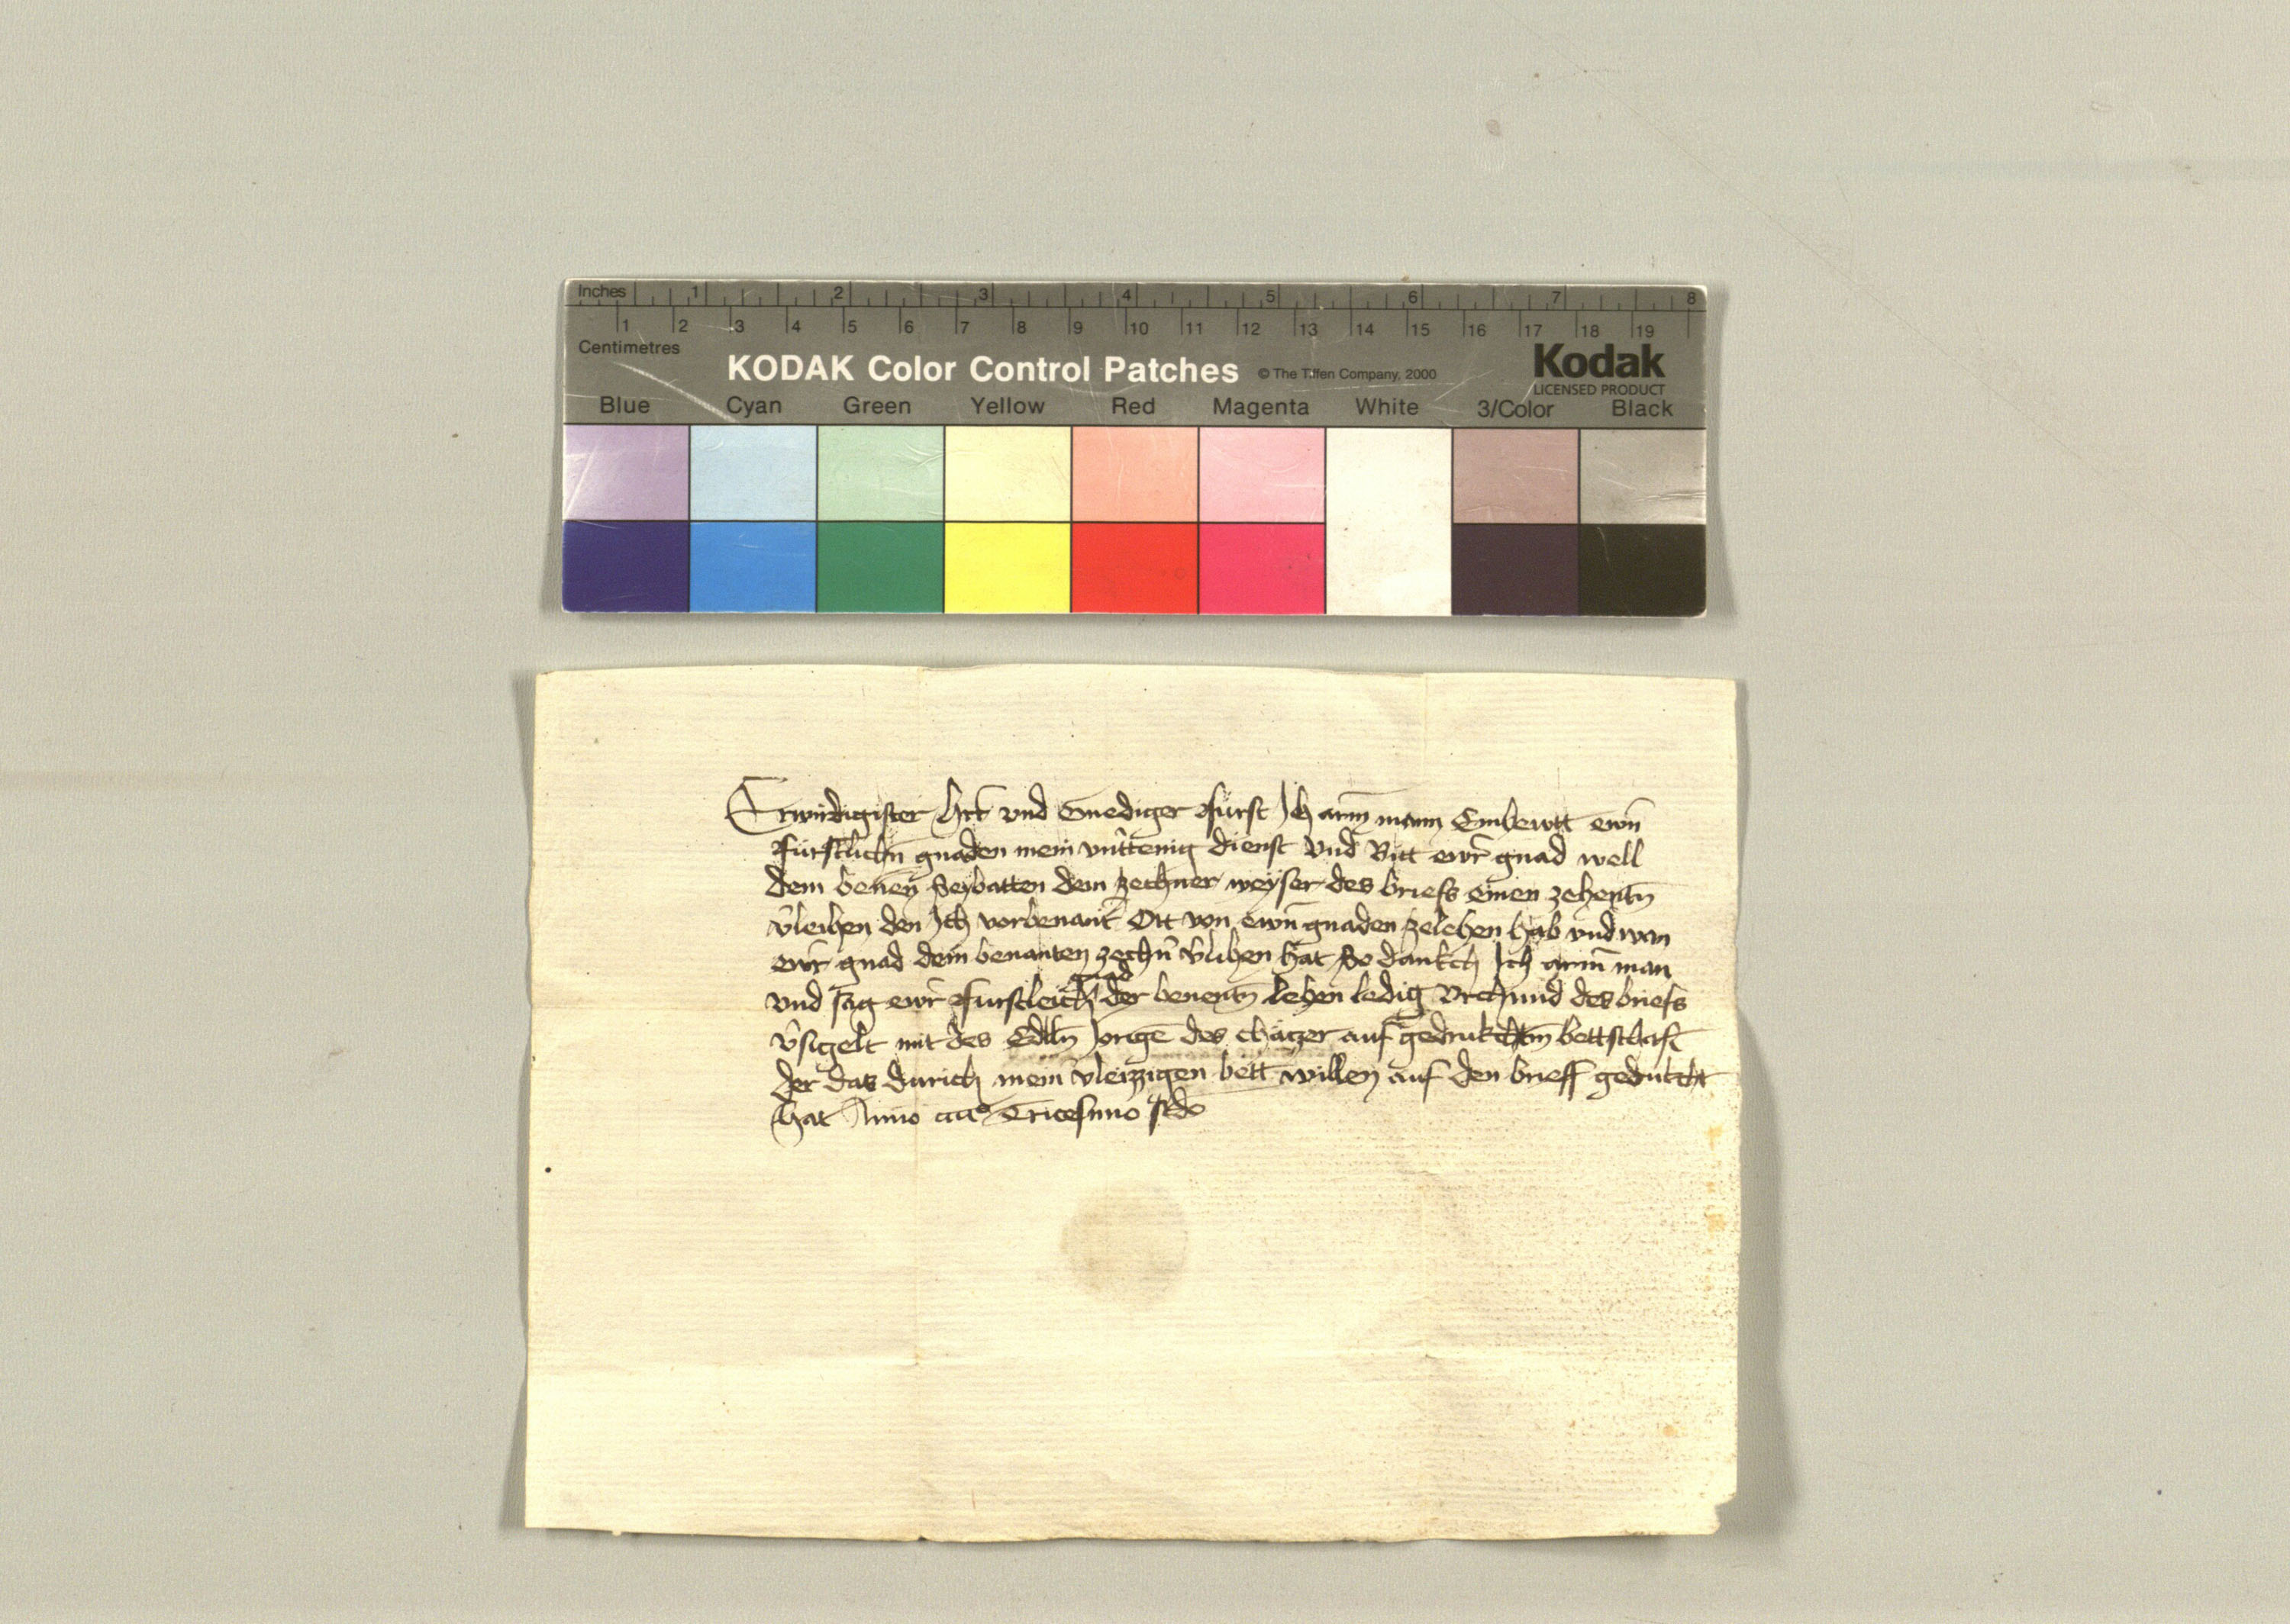 Inches 1 2 3 4 5 6 7 8
1 2 3 4 5 6 7 8 9 10 11 12 13 14 15 16 17 18 19
Centimetres
KODAK Color Control Patches © The Tiffen Company, 2000 Kodak
LICENSED PRODUCT
Blue Cyan Green Yellow Red Magenta White 3/Color Black
Erwirdigister hrr vnd Gnediger fürst Ich arm man Embewtt ewrn
fürstlichn gnaden mein vnttenig dienst vnd Bitt ewr gnad well
dem Seybatten dem zechner weyser des briefs einen zehentn
vleihen den Ich vorbenant Ott von ewrn gnaden zelehen hab vnd wan
ewr gnad dem benanten zechn vlihen hat So dankch Ich arm man
vnd sag ewr furstleich gnad der benentn lehen ledig Vrchund des briefs
vsigelt mit des Edeln Jorige des chätzer auf gedrukchtm bettschaft
der das durich mein vleizzigen bett willen auf den brieff gedrukcht
hat Anno etc Tricesimo scdo